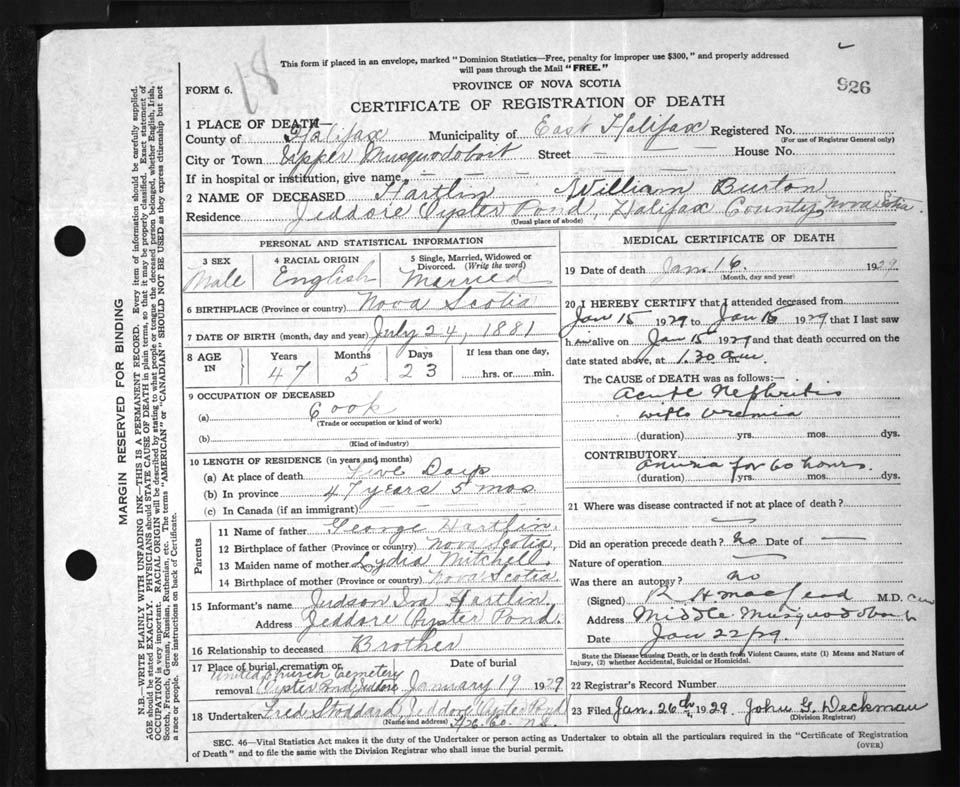 18
This form if placed in an envelope, marked "Dominion Statistics—Free, penalty for improper use $300," and properly addressed
will pass through the Mail "FREE."
926
FORM 6.
PROVINCE OF NOVA SCOTIA
CERTIFICATE OF REGISTRATION OF DEATH
1 PLACE OF DEATH—
County of Halifax Municipality of East Halifax Registered No.
(For use of Registrar General only)
City or Town Upper Musquodoboit Street — — House No.
If in hospital or institution, give name
2 NAME OF DECEASED Hartlin William Burton
Residence Jeddore Oyster Pond, Halifax County, Nova Scotia.
(Usual place of abode)
PERSONAL AND STATISTICAL INFORMATION
3 SEX
Male
4 RACIAL ORIGIN
English
5 Single, Married, Widowed or
Divorced. (Write the word)
Married
6 BIRTHPLACE (Province or country) Nova Scotia
7 DATE OF BIRTH (month, day and year) July 24, 1881
8 AGE IN
Years Months Days If less than one day,
47 5 23 hrs. or min.
9 OCCUPATION OF DECEASED
(a) Cook
(Trade or occupation or kind of work)
(b)
(Kind of industry)
10 LENGTH OF RESIDENCE (in years and months)
(a) At place of death Five Days
(b) In province 47 years 5 mos
(c) In Canada (if an immigrant) — —
Parents
11 Name of father George Hartlin.
12 Birthplace of father (Province or country) Nova Scotia,
13 Maiden name of mother Lydia Mitchell
14 Birthplace of mother (Province or country) Nova Scotia
15 Informant's name Judson Ira Hartlin
Address Jeddore Oyster Pond.
16 Relationship to deceased Brother
17 Place of burial, cremation or removal
United Church Cemetery
Oyster Pond Jeddore
Date of burial
January 19 1929
18 Undertaker Fred Stoddard Jeddore Oyster Pond
(Name and address) Hfx. Co. N.S.
MEDICAL CERTIFICATE OF DEATH
19 Date of death Jan. 16. 1929
(Month, day and year)
20 I HEREBY CERTIFY that I attended deceased from
Jan 15 1929 to Jan 16 1929 that I last saw
him alive on Jan 15 1929 and that death occurred on the
date stated above, at 1.30 am.
The CAUSE OF DEATH was as follows:—
Acute Nephritis
with Uremia
(duration) yrs. mos. dys.
CONTRIBUTORY
Anuria for 60 hours.
(duration) yrs. mos. dys.
21 Where was disease contracted if not at place of death?
Did an operation precede death? No Date of —
Nature of operation —
Was there an autopsy? no
(Signed) R H MacLeod M.D.
Address Middle Musquodoboit
Date Jan 22/29.
State the Disease causing Death, or in death from Violent Causes, state (1) Means and Nature of
Injury, (2) whether Accidental, Suicidal or Homicidal.
22 Registrar's Record Number
23 Filed Jan. 26th, 1929. John G. Deckman
(Division Registrar)
SEC. 46—Vital Statistics Act makes it the duty of the Undertaker or person acting as Undertaker to obtain all the particulars required in the "Certificate of Registration
of Death" and to file the same with the Division Registrar who shall issue the burial permit.
(OVER)
MARGIN RESERVED FOR BINDING
N.B.—WRITE PLAINLY WITH UNFADING INK—THIS IS A PERMANENT RECORD. Every item of information should be carefully supplied.
AGE should be stated EXACTLY. PHYSICIANS should STATE CAUSE OF DEATH in plain terms, so that it may be properly classified. Exact statement of
OCCUPATION is very important. RACIAL ORIGIN will be described by stating to what people or tongue the deceased person belonged, whether English, Irish,
Scotch, French, German, Russian, Ruthenian, etc. The terms "AMERICAN" or "CANADIAN" SHOULD NOT BE USED as they express citizenship but not
a race or people. See instructions on back of Certificate.